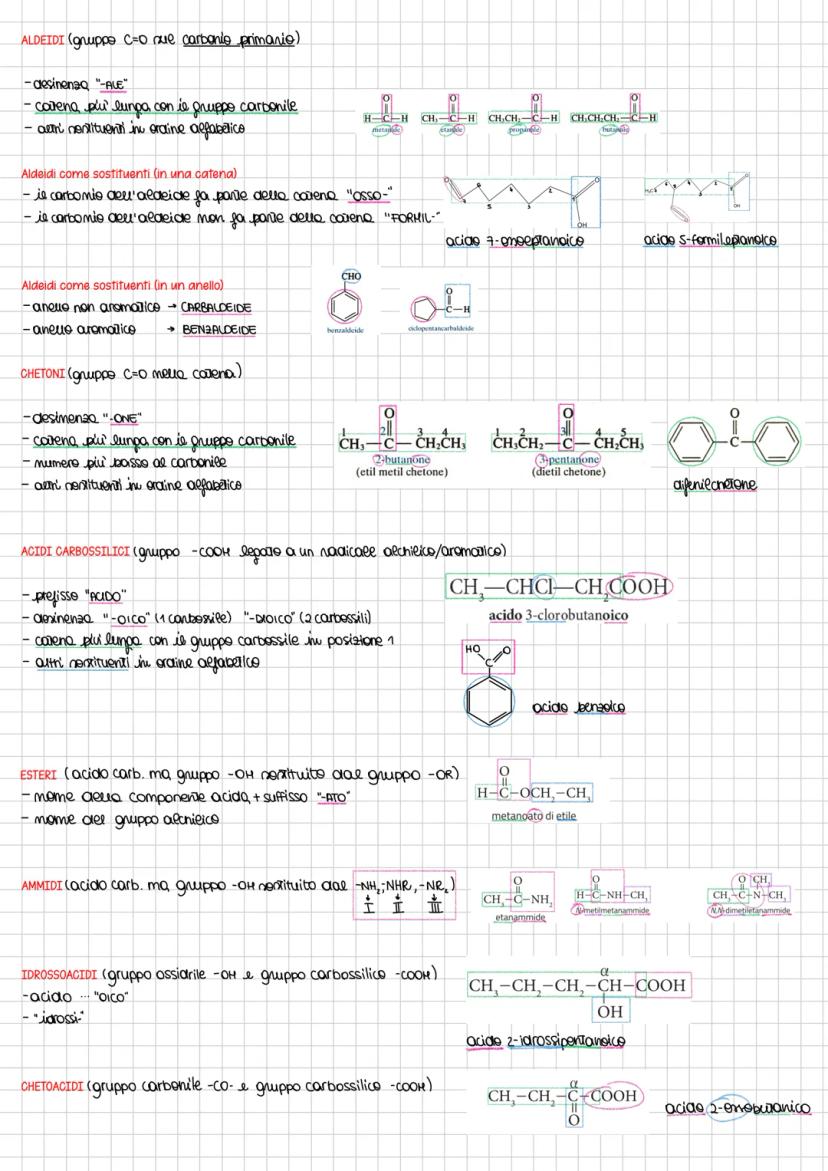 ALDEIDI (gruppo C=O sul carbonio primario)
- desinenza "-ALE"
- catena più lunga con il gruppo carbonile
- altri sostituenti in ordine alfabetico
O O O O
H–C–H CH₃–C–H CH₃CH₂–C–H CH₃CH₂CH₂–C–H
metanale etanale propanale butanale
Aldeidi come sostituenti (in una catena)
- il carbonio dell'aldeide fa parte della catena "OSSO-"
- il carbonio dell'aldeide non fa parte della catena "FORMIL-"
OH
acido 7-ossoeptanoico acido 5-formileptanoico
Aldeidi come sostituenti (in un anello)
- anello non aromatico → CARBALDEIDE
- anello aromatico → BENZALDEIDE
CHO
benzaldeide
O
C–H
ciclopentancarbaldeide
CHETONI (gruppo C=O nella catena)
- desinenza "-ONE"
- catena più lunga con il gruppo carbonile
- numero più basso al carbonile
- altri sostituenti in ordine alfabetico
O
1 2 3 4
CH₃—C—CH₂CH₃
2-butanone
(etil metil chetone)
O
1 2 3 4 5
CH₃CH₂—C—CH₂CH₃
3-pentanone
(dietil chetone)
O
C
difenilchetone
ACIDI CARBOSSILICI (gruppo -COOH legato a un radicale alchilico/aromatico)
- prefisso "ACIDO"
- desinenza "-OICO" (1 carbossile) "-DIOICO" (2 carbossili)
- catena più lunga con il gruppo carbossile in posizione 1
- altri sostituenti in ordine alfabetico
CH₃—CHCl—CH₂COOH
acido 3-clorobutanoico
HO O
C
acido benzoico
ESTERI (acido carb. ma gruppo -OH sostituito dal gruppo -OR)
- nome della componente acida + suffisso "-ATO"
- nome del gruppo alchilico
O
H–C–OCH₂–CH₃
metanoato di etile
AMMIDI (acido carb. ma gruppo -OH sostituito dal -NH₂,-NHR,-NR₂)
I II III
O
CH₃–C–NH₂
etanammide
O
H–C–NH–CH₃
N-metilmetanammide
O CH₃
CH₃–C–N–CH₃
N,N-dimetiletanammide
IDROSSOACIDI (gruppo ossidrile -OH e gruppo carbossilico -COOH)
-acido ... "OICO"
- "idrossi-"
α
CH₃–CH₂–CH₂–CH–COOH
OH
acido 2-idrossipentanoico
CHETOACIDI (gruppo carbonile -CO- e gruppo carbossilico -COOH)
α
CH₃–CH₂–C–COOH
O
acido 2-ossobutanico